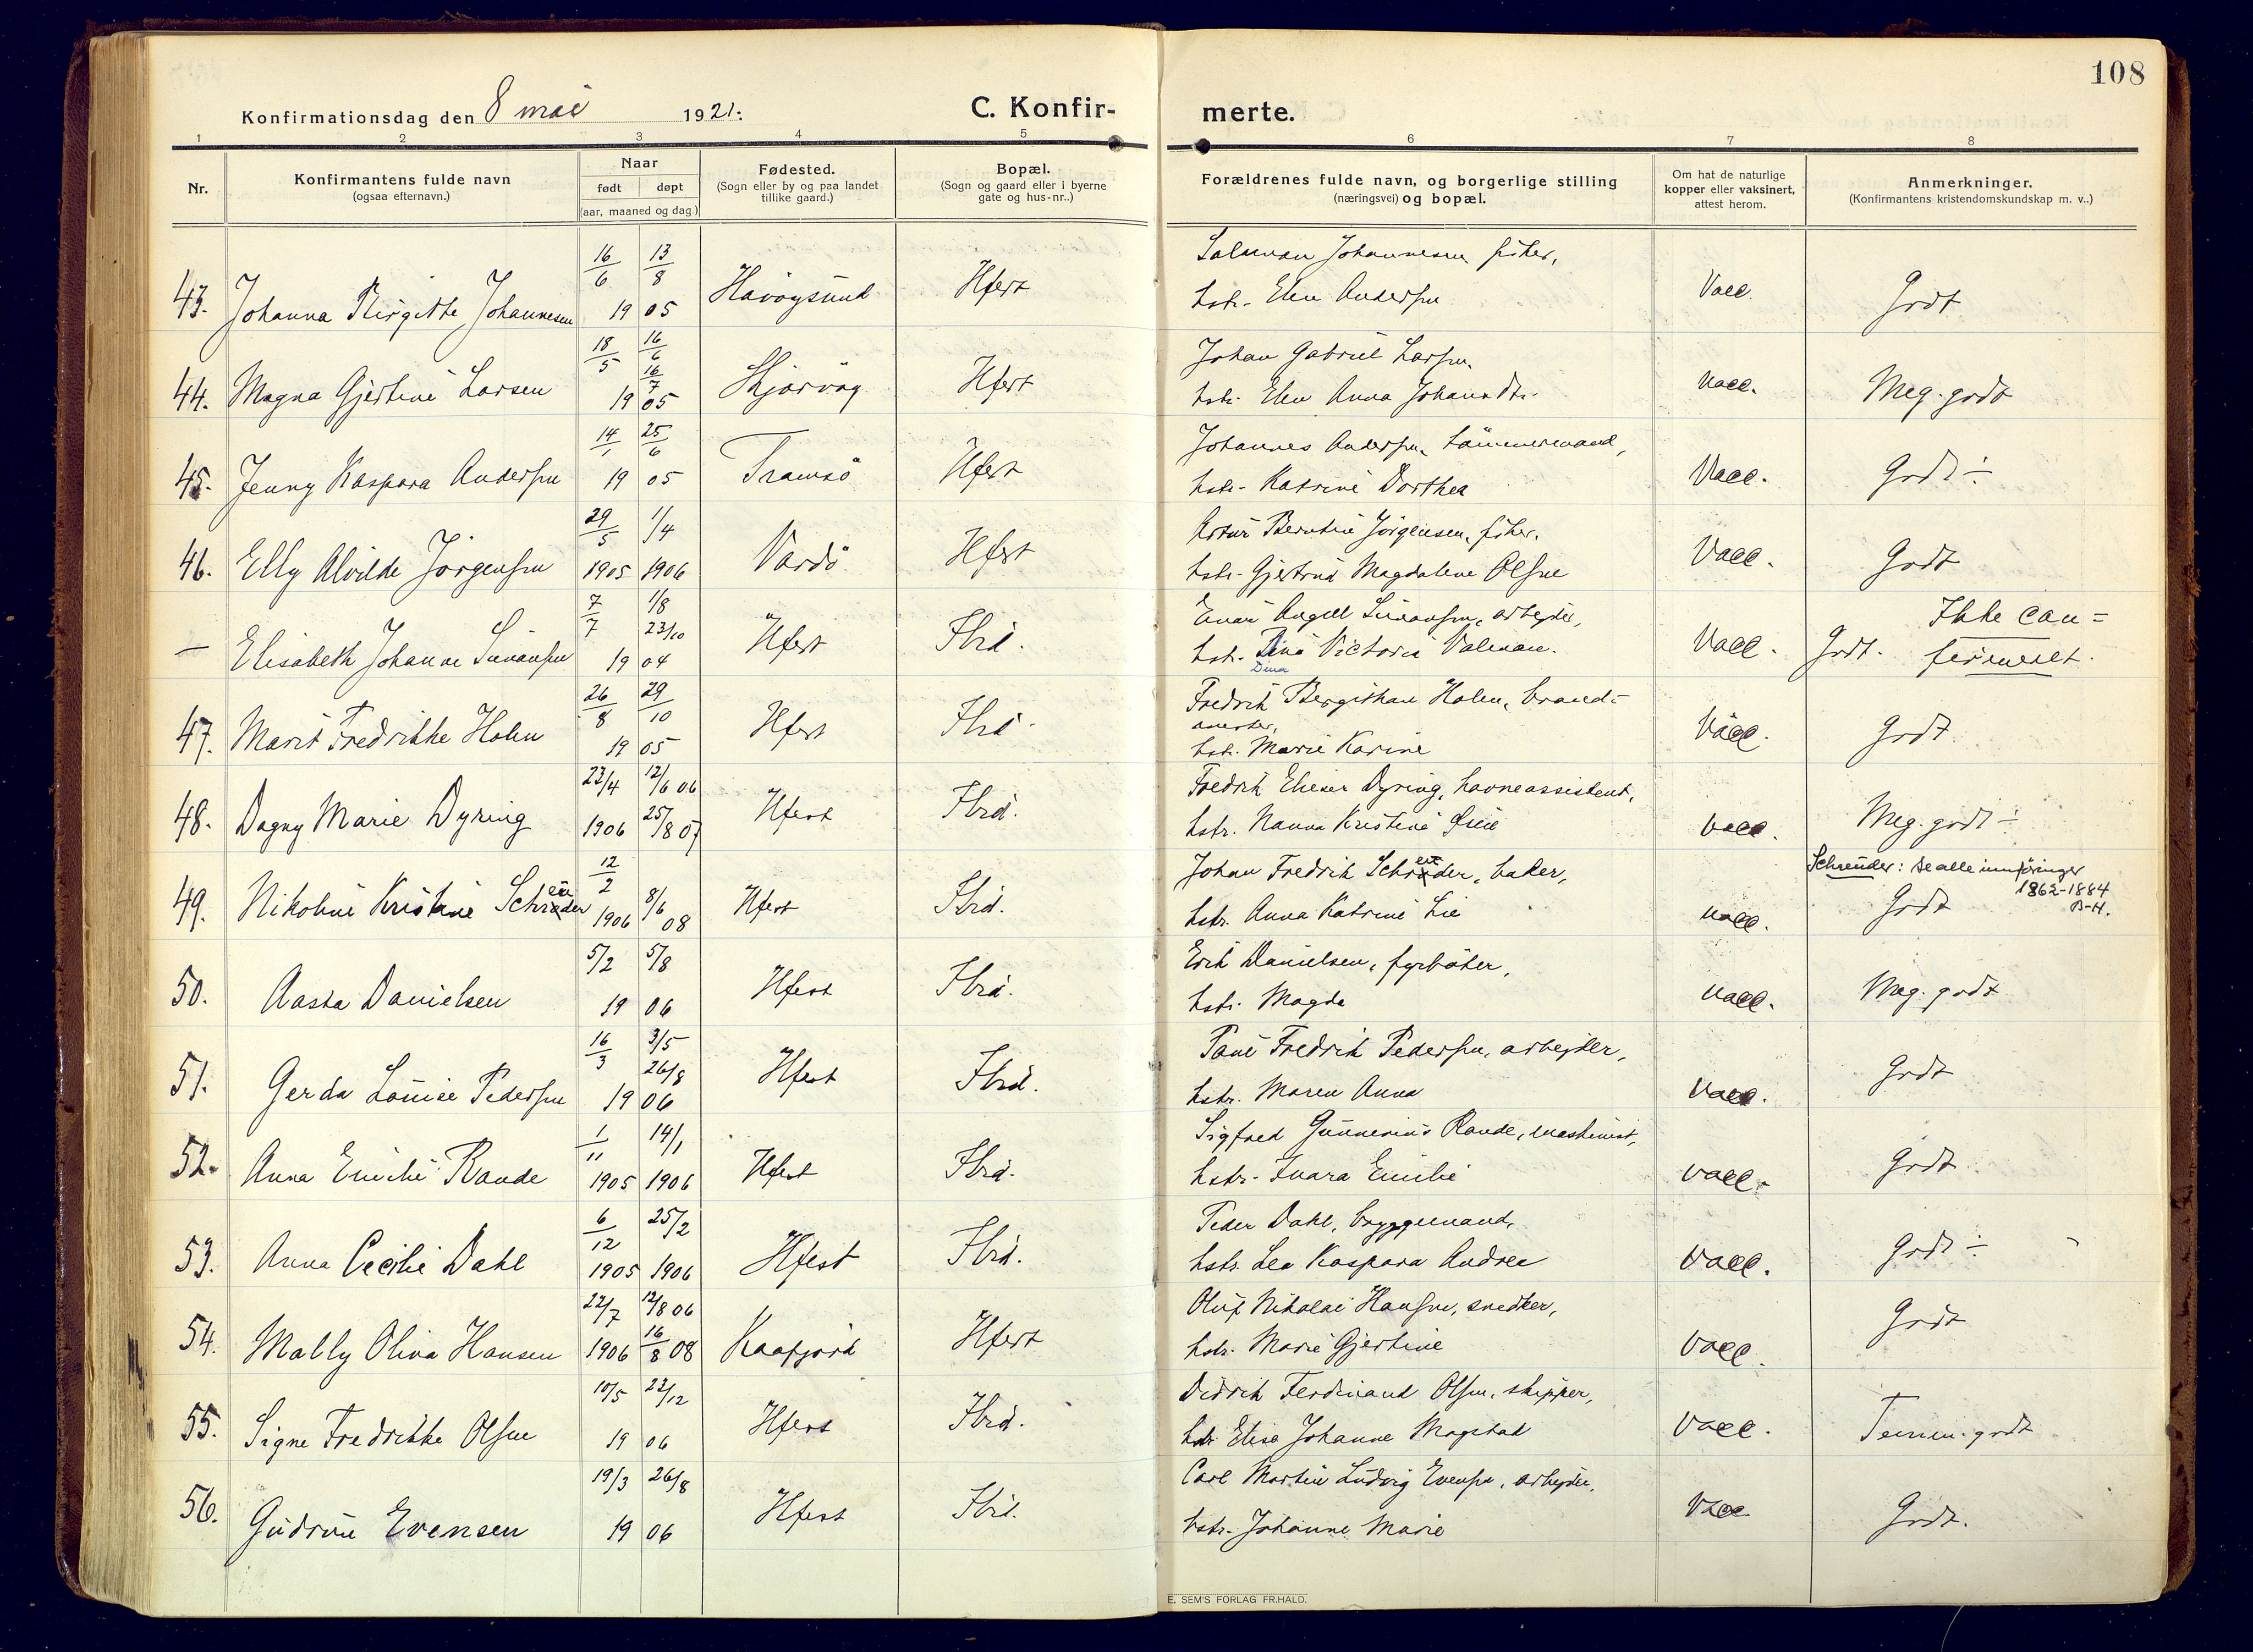 108
Konfirmationsdag den 8 mai 1921. C. Konfir- merte.
1 2 3 4 5 6 7 8
Nr.
Konfirmantens fulde navn
(ogsaa efternavn.)
Naar
født døpt
(aar, maaned og dag)
Fødested.
(Sogn eller by og paa landet
tillike gaard.)
Bopæl.
(Sogn og gaard eller i byerne
gate og hus-nr..)
Forældrenes fulde navn, og borgerlige stilling
(næringsvei) og bopæl.
Om hat de naturlige
kopper eller vaksinert,
attest herom.
Anmerkninger.
(Konfirmantens kristendomskundskap m. v..)
16/6 13/8 Johannesen fisker,
43. Johanna Birgitte Johannesen 19 05 Havøysund Hfest hstr. Elen Andersen Vacc. Godt
18/5 16/6 16/7 Johan Gabriel Larsen,
44. Magna Gjertine Larsen 19 05 Skjervøy Hfest hstr. Elen Anna Johansdtr. Vacc. Meg. godt
14/1 25/6 Johannes Andersen, tømmermand,
45. Jenny Kaspara Andersen 19 05 Tromsø Hfest hstr. Katrine Dorthea Vacc. Godt ÷
29/5 1/4 Artur Berntin Jørgensen, fisker,
46. Elly Alvilde Jørgensen 1905 1906 Vardø Hfest hstr. Gjertrud Magdalene Olsen Vacc. Godt
7/7 1/8 23/10 Einar Angell Simonsen, arbejder, Ikke con=
— Elisabeth Johanne Simonsen 19 04 Hfest Ibid. hstr. Dina Victoria Valman. Vacc. Godt. firmeret.
Dina
26/8 29/10 Fredrik Bergithan Holm, brand=
mester,
47. Marit Fredrikke Holm 19 05 Hfest Ibid. hstr. Marie Karine Vacc. Godt
23/4 12/6 06 Fredrik Elieser Dyring, havneassistent,
48. Dagny Marie Dyring 1906 25/8 07 Hfest Ibid. hstr. Nanna Kristine Vacc. Meg. godt ÷
12/2 Johan Fredrik Schrøder, baker, Schreuder: se alle innføringer
eu eu 1862-1884
49. Nikoline Kristine Schrøder 1906 8/6 08 Hfest Ibid. hstr. Anna Katrine Lie Vacc. Godt B-H.
5/2 5/8 Erik Danielsen, fyrbøter,
50. Aasta Danielsen 19 06 Hfest Ibid. hstr. Magda Vacc. Meg. godt
16/3 3/5 26/8 Paul Fredrik Pedersen, arbejder,
51. Gerda Louise Pedersen 19 06 Hfest Ibid. hstr. Maren Anna Vacc. Godt
1/11 14/1 Sigfred Gunnerius Rande, maskinist,
52. Anna Emilie Rande 1905 1906 Hfest Ibid. hstr. Ivara Emilie Vacc. Godt
6/12 25/2 Peder Dahl, bryggemand,
53. Anna Cecilie Dahl 1905 1906 Hfest Ibid. hstr. Lea Kaspara Andrea Vacc. Godt ÷
22/7 12/8 06 Oluf Nikolai Hansen, snedker,
54. Mally Oliva Hansen 1906 16/8 08 Kaafjord Hfest hstr. Marie Gjertine Vacc. Godt
10/5 22/12 Didrik Ferdinand Olsen, skipper,
55. Signe Fredrikke Olsen 19 06 Hfest Ibid. hstr. Elise Johanne Mogstad Vacc. Temm. godt
19/3 26/8 Carl Martin Ludvig Evensen, arbejder,
56. Gudrun Evensen 19 06 Hfest Ibid. hstr. Johanne Marie Vacc. Godt.
E. SEM'S FORLAG FR.HALD.